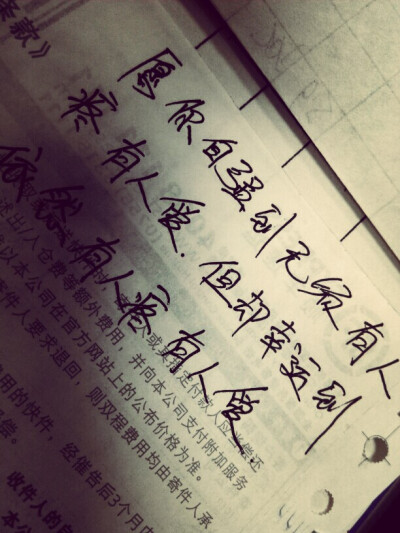 条款》
愿你自强到无需有人
疼有人爱.但却幸运到
依然有人疼有人爱.
或其指定付款人应当偿还
出/入仓费等额外费用,并向本公司支付附加服务
以本公司在官方网站上的公布价格为准。
寄件人要求退回,则双程费用均由寄件人承
用的快件,经催告后3个月内
收件人的